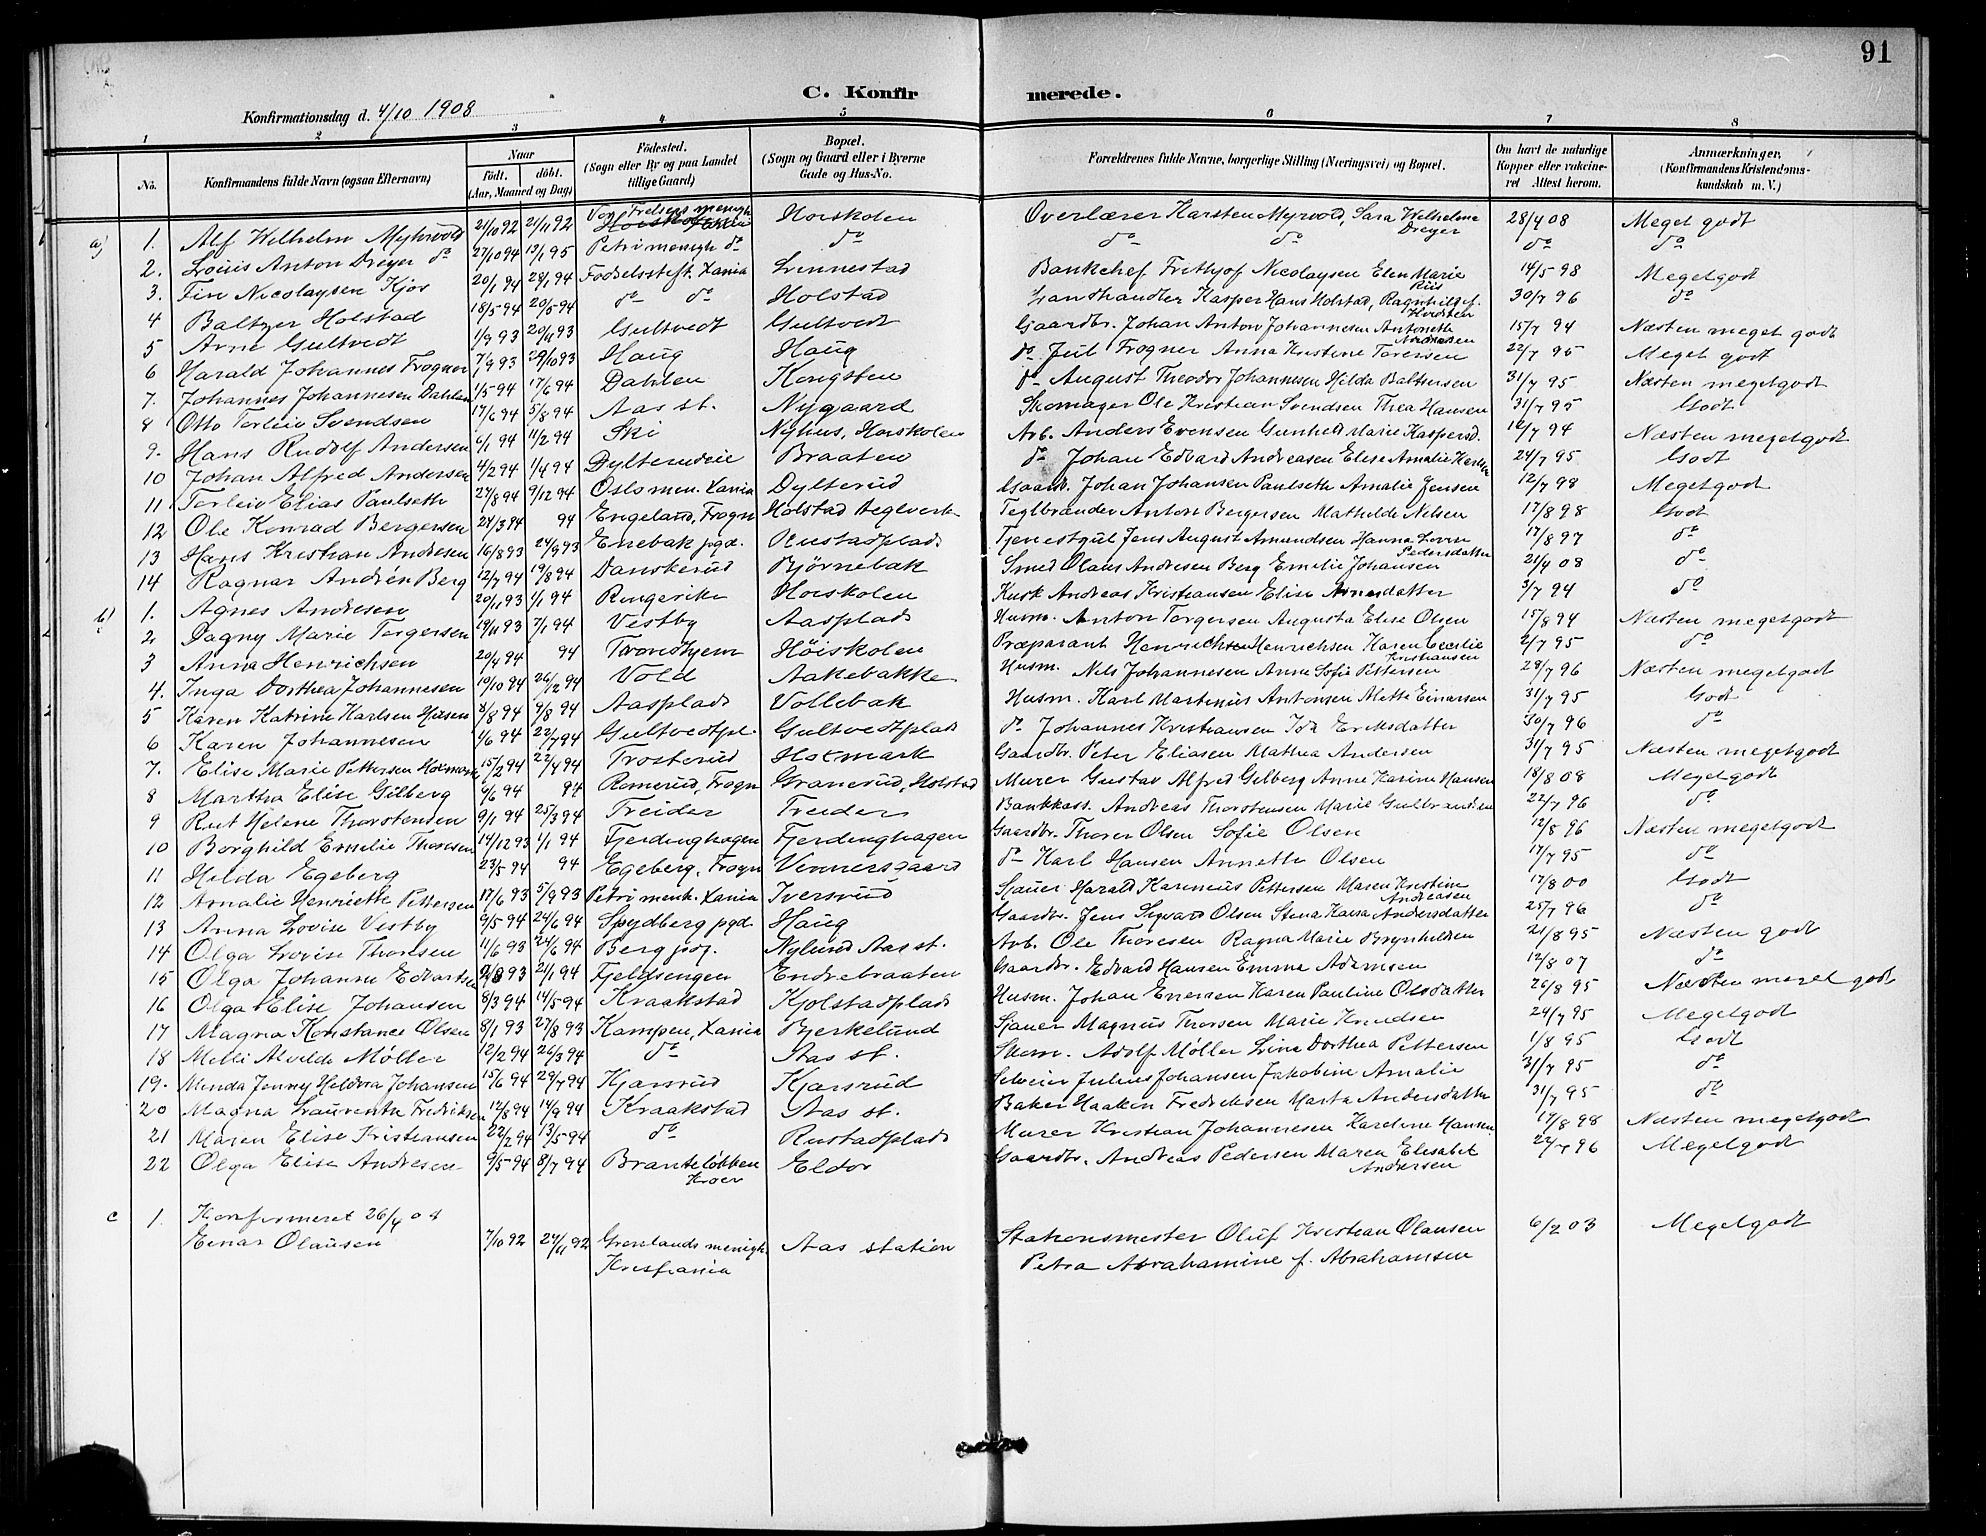 91
C. Konfirmerede.
Konfirmationsdag d. 4/10 1908
1 2 3 4 5 6 7 8
No. Konfirmandens fulde Navn (ogsaa Efternavn) Naar født. døbt. (Aar, Maaned og Dag) Fødested. (Sogn eller By og paa Landet tillige Gaard) Bopæl. (Sogn og Gaard eller i Byerne Gade og Hus-No. Forældrenes fulde Navne, borgerlige Stilling (Næringsvei) og Bopæl. Om havt de naturlige Kopper eller vakcineret Attest herom. Anmærkninger. (Konfirmandens Kristendomskundskab m. V.)
a) 1. Alf Wilhelm Myhrvold 21/10 92 21/11 92 Vor Frelsers menigh. Høiskolen Overlærer Karsten Myrvold, Sara Wilhelmine Dreyer 28/4 08 Meget godt
2. Louis Anton Dreyer do 27/10 94 12/1 95 Petri menigh do do do do do do
3. Fin Nicolaysen Kjos 20/1 94 24/1 94 Fødselsstift. Xania Linnestad Bankchef Frithjof Nicolaysen Elen Marie Riis 14/5 98 Megetgodt
4 Baltzer Holstad 18/5 94 20/5 94 do do Holstad Landhandler Kasper Hans Holstad, Ragnhild f. 30/7 96 do
5 Arne Gultvedt 1/9 93 20/11 93 Gultvedt Gultvedt Gaardbr. Johan Anton Johannesen Antonette Andreasen 15/7 94 Næsten meget godt
6 Harald Johannes Frogner 7/9 93 29/10 93 Haug Haug do Juil Frogner Anna Kristine Toresen 22/7 95 Meget godt
7. Johannes Johannesen Dahlen 1/5 94 17/6 94 Dahlen Kongsten do August Theodor Johannesen Hilda Baltsersen 31/7 95 Næsten megetgodt
8 Otto Terleiv Svendsen 17/6 94 5/8 94 Aas st. Nygaard Skomager Ole Kristian Svendsen Thea Hansen 31/7 95 Godt
9. Hans Rudolf Andersen 6/1 94 11/2 94 Ski Nyhus, Høiskolen Arb. Anders Evensen Gunhild Marie Kaspersd. 12/7 94 Næsten megetgodt
10 Johan Alfred Andersen 4/2 94 1/4 94 Dylterudeie Braaten do Johan Edvard Andreasen Elise Amalie Karlsen 24/7 95 Godt
11 Terleiv Elias Paulseth 27/8 94 9/12 94 Oslo men. Xania Dylterud Gaardb. Johan Johansen Paulseth Amalie Jensen 12/7 98 Megetgodt
12 Ole Konrad Bergersen 24/3 94 94 Engelund, Frogn Holstad Teglverk Teglbrænder Anton Bergersen Mathilde Nilsen 17/8 98 Godt
13 Hans Kristian Andresen 16/8 93 24/9 93 Enebak pgd. Rustadplads Tjenestgut Jens August Amundsen Hanna Lovise Pedersdatter 17/8 97 do
14 Ragnar Andrén Berg 12/7 94 19/8 94 Danskerud Bjørnebak Smed Olaus Andresen Berg Emelie Johansen 21/4 08 do
b) 1. Agnes Andresen 20/11 93 1/1 94 Ringerike Høiskolen Kusk Andreas Kristiansen Elise Arnesdatter 3/7 94 do
2 Dagny Marie Torgersen 19/11 93 7/1 94 Vestby Aasplads Husm. Anton Torgersen Augusta Elise Olsen 15/8 94 Næsten megetgodt
3 Anna Henrichsen 20/4 94 94 Trondhjem Høiskolen Præparant Henrichsen Henrichsen Karen Cecilie Kristiansen 2/7 95 do
4. Inga Dorthea Johannesen 10/10 94 26/12 94 Vold Aakebakke Husm. Nils Johannesen Anne Sofie Pettersen 28/7 96 Næsten megetgodt
5 Karen Katrine Karlsen Husen 8/8 94 9/8 94 Aasplads Vollebak Husm. Karl Martinius Antonsen Mette Einarsen 31/7 95 Godt
6 Karen Johannesen 1/6 94 22/7 94 Gultvedtpl. Gultvedtplads do Johannes Kristiansen Ida Eriksdatter 30/7 96 do
7. Elise Marie Pettersen Holmark 15/2 94 22/4 94 Trosterud Holmark Gaardbr. Peter Eliasen Mathea Andersen 31/7 95 Næsten megetgodt
8 Martha Elise Gilberg 4/6 94 94 Romerud, Frogn Granerud, Holstad Murer Gustav Alfred Gilberg Anne Karine Hansen 18/8 08 Megetgodt
9 Rut Helene Thorstensen 9/1 94 25/3 94 Treider Treider Bankkass. Andreas Thorstensen Marie Gulbrandsen 22/7 96 do
10 Borghild Emelie Thoresen 14/12 93 1/1 94 Fjerdinghagen Fjerdinghagen Gaardbr. Thorer Olsen Sofie Olsen 12/8 96 Næsten megetgodt
11 Hilda Egeberg 23/5 94 94 Egeberg, Frogn Vinnersgaard do Karl Hansen Annette Olsen 17/7 95 do
12 Amalie Henriette Pettersen 17/6 93 5/9 93 Petri menh. Xania Iversrud Sjauer Harald Karenius Pettersen Maren Kristine Andreasen 17/8 00 Godt
13 Anna Lovise Vestby 9/5 94 24/6 94 Spydberg pgd. Haug Gaardbr. Jens Sigvard Olsen Stena Kaisa Andersdatter 25/7 96 do
14 Olga Lovise Thoresen 11/6 93 24/6 94 Berg pgj. Nylund Aas st. Arb. Ole Thoresen Ragna Marie Brynhildsen 21/8 95 Næsten godt
15 Olga Johanne Edvartsen 93 21/1 94 Fjeldsengen Endrebraaten Gaardbr. Edvard Hansen Emma Adamsen 12/8 07 do
16 Olga Elise Johansen 8/3 94 14/5 94 Kraakstad Kjolstadplads Husm. Johan Enersen Karen Pauline Olsdatter 26/8 95 Næsten meget godt
17 Magna Konstance Olsen 8/1 93 27/8 93 Kampen, Xania Bjerkelund Sjauer Magnus Thorsen Marie Knudsen 24/7 95 Megetgodt
18 Milli Alvilde Møller 12/2 94 26/3 94 do Aas st. Skom. Adolf Møller Lina Dorthea Pettersen 1/8 95 Godt
19. Minda Jenny Heldora Johansen 15/6 94 29/7 94 Kjærsrud Kjærsrud Selveier Julius Johansen Jakobine Amalie 31/7 95 do
20 Magna Laurentze Fredriksen 12/8 94 14/9 94 Kraakstad Aas st. Baker Haaken Fredriksen Marta Andersdatter 31/7 95 do
21 Maren Elise Kristiansen 22/2 94 13/5 94 do Rustadplads Murer Kristian Johannesen Karoline Hansen 17/8 98 Næsten megetgodt
22 Olga Elise Andresen 9/5 94 8/7 94 Branteløkken Kroer Eldor Gaardbr. Andreas Pedersen Maren Elisabet Andersen 22/7 96 Megetgodt
c 1. Konfirmeret 26/4 08
Einar Olausen 7/10 92 27/11 92 Grønlands menigh. Kristiania Aas station Stationsmester Oluf Kristian Olausen 6/2 03 Megetgodt
Petra Abrahamine f. Abrahamsen